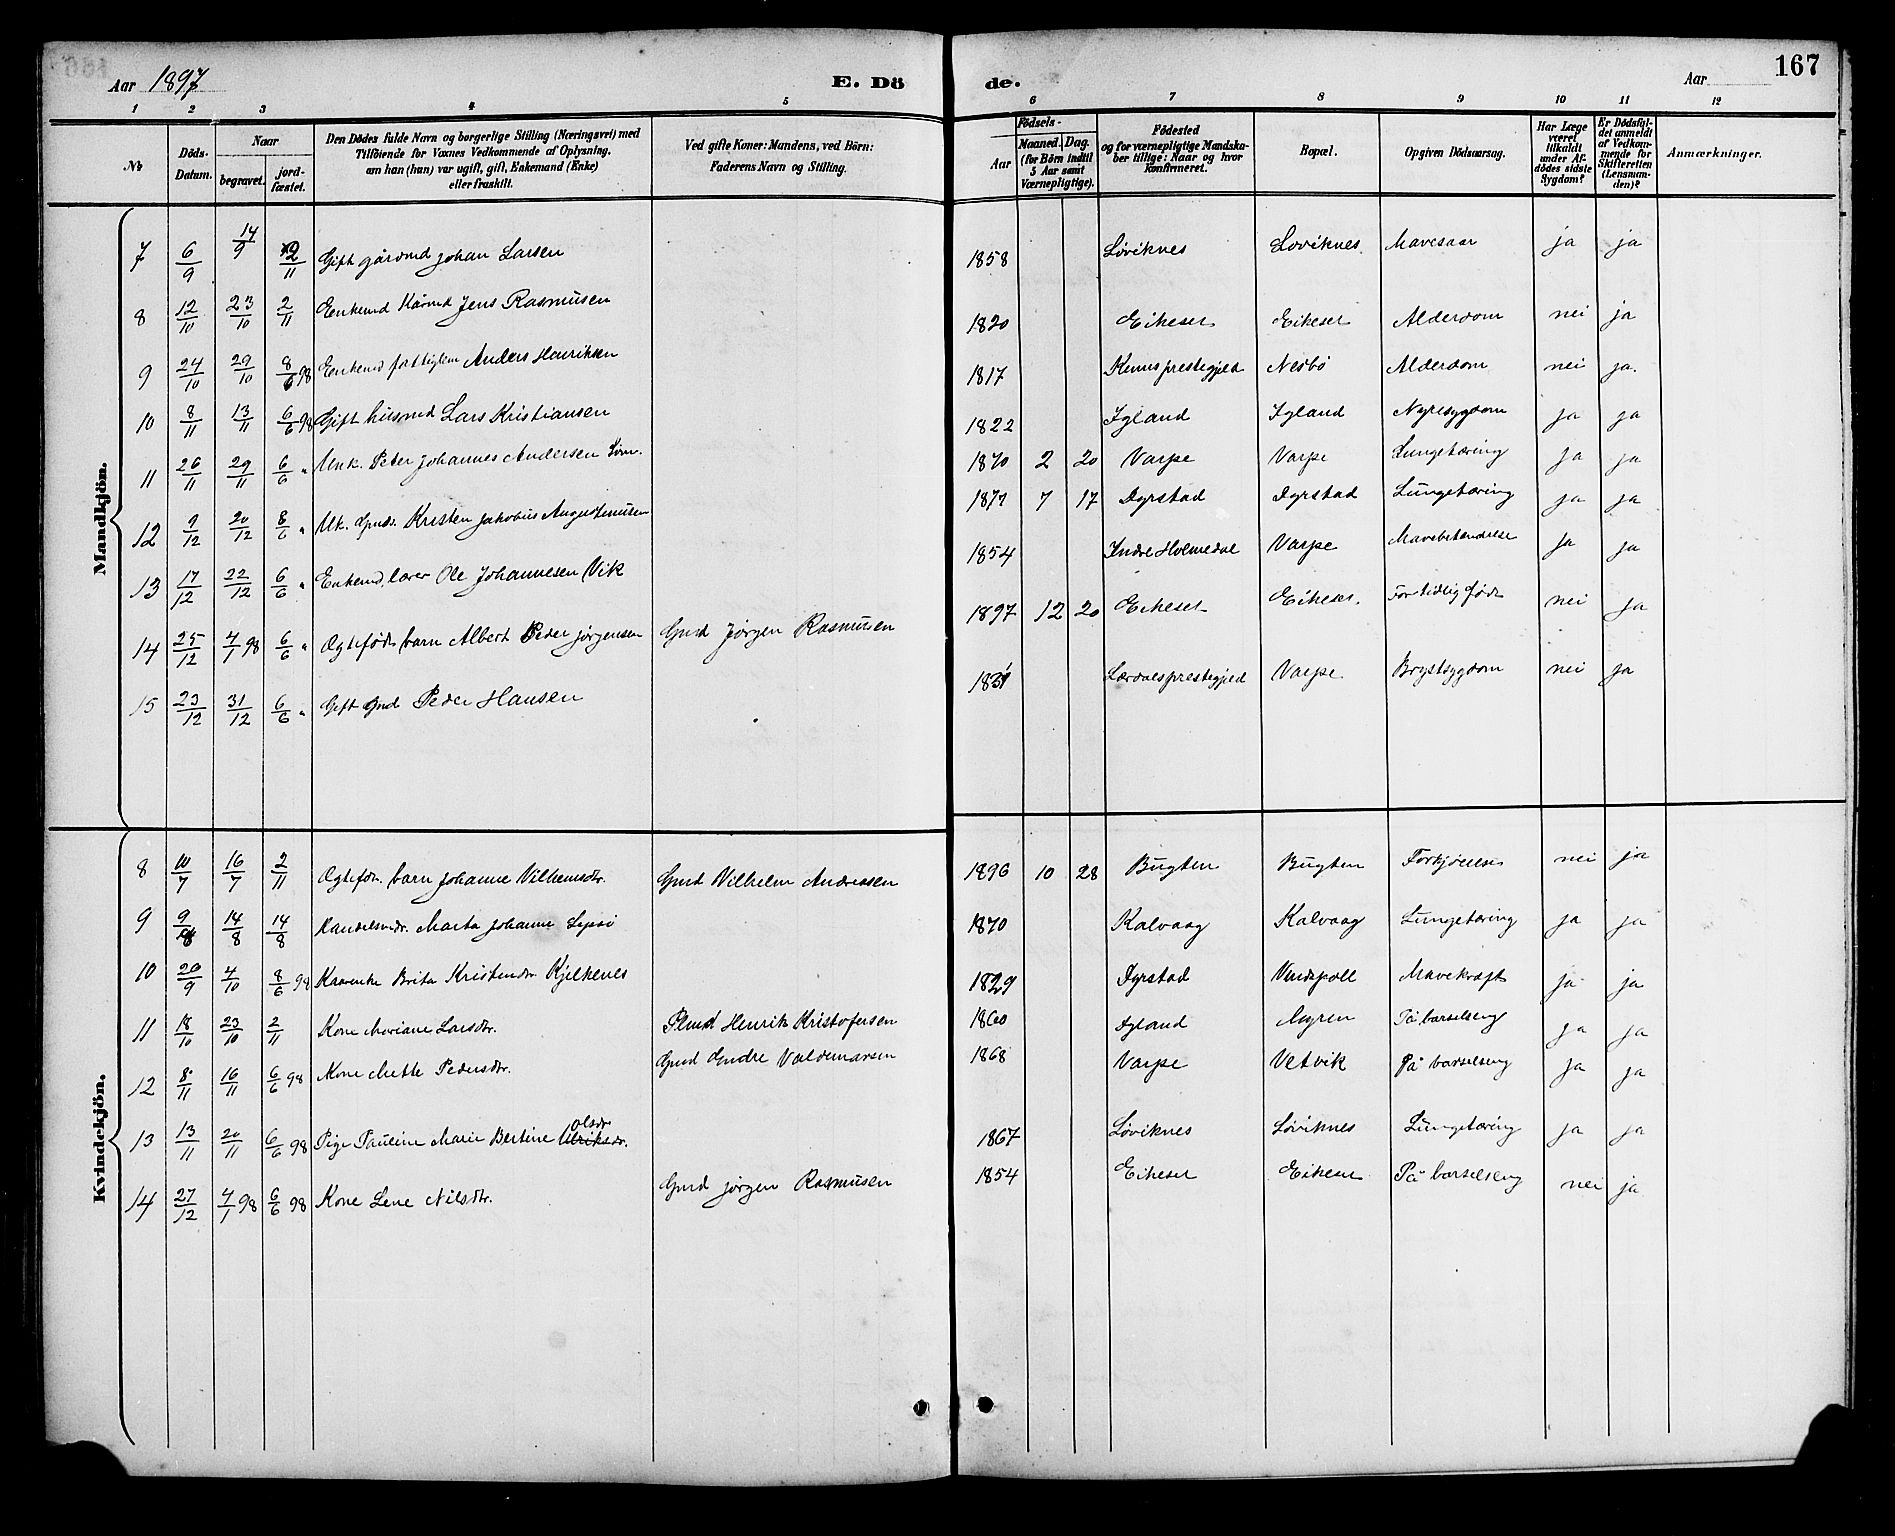 Aar 1897 E. Dö de. Aar 167
1 2 3 4 5 6 7 8 9 10 11 12
№ Döds-Datum. Naar begravet. jordfæstet. Den Dödes fulde Navn og borgerlige Stilling (Næringsvei) med Tilföiende for Voxnes Vedkommende af Oplysning, om han (hun) var ugift, gift, Enkemand (Enke) eller fraskilt. Ved gifte Koner: Mandens, ved Börn: Faderens Navn og Stilling. Födsels- Aar Maaned. Dag. (for Börn indtil 5 Aar samt Værnepligtige). Födested og for værnepligtige Mandskaber tillige: Naar og hvor konfirmeret. Bopæl. Opgiven Dödsaarsag. Har Læge været tilkaldt under Afdödes sidste Sygdom? Er Dödsfaldet anmeldt af Vedkommende for Skifteretten (Lensmanden)? Anmærkninger.
Mandkjön.
7 6/9 14/9 2/11 Gift gårdmd Johan Larsen 1858 Løviknes Løviknes. Mavesaar ja ja
8 12/10 23/10 2/11 Enkemd Kårmd Jens Rasmusen 1820 Eikeset Eikeset Alderdom nei ja
9 24/10 29/10 8/6 98 Enkemd fattiglem Anders Henriksen 1817 Kinns prestegjeld Nesbö Alderdom nei ja.
10 8/11 13/11 6/6 98 Gift husmd Lars Kristiansen 1822 Igland Igland Nyresygdom ja ja
11 26/11 29/11 6/6 " Unk. Peter Johannes Andersen 1870 2 20 Varpe Varpe Lungetæring ja ja
12 9/12 20/12 8/6 " Uk. Gmds. Kristen Jakobus Augustinusen 1877 7 17 Dyrstad Dyrstad Lungetæring ja ja
13 17/12 22/12 6/6 " Enkemd, lærer Ole Johannesen Vik 1854 Indre Holmedal Varpe Mavebetændelse ja ja
14 25/12 4/1 98 6/6 " Ægtefødt barn Albert Peder Jørgensen Gmd Jørgen Rasmusen 1897 12 20 Eikeset Eikeset. For tidlig født nei ja
15 23/12 31/12 6/6 " Gift Gmd Peder Hansen 1831 Lærdals prestegjeld Varpe. Brystsygdom nei ja
Kvindekjön.
8 10/7 16/7 2/11 Ægtefdt. barn Johanne Vilhemsdtr. Gmd Vilhelm Andreasen 1896 10 28 Bugten Bugten Forkjølelse nei ja
9 9/8 14/8 14/8 Handelsmdr. Marta Johanne 1870 Kalvaag Kalvaag Lungetæring ja ja
10 20/9 4/10 8/6 98 Kaarenke Brita Kristensdtr Kjelkenes 1829 Dyrstad Vindspoll Mavekræft ja ja
11 18/10 23/10 2/11 Kone Mariane Larsdtr. Plmd Henrik Kristofersen 1860 Igland Myren På barselseng ja ja
12 8/11 16/11 6/6 98 Kone Mette Pedersdtr. Gmd Endre Valdemarsen 1868 Varpe Vetvik På barselseng ja ja
13 13/11 20/11 6/6 98 Pige Pauline Marie Bertine Ulriksdr. Olsdtr 1867 Løviknes Løviknes Lungetæring ja ja
14 27/12 4/1 98 6/6 98 Kone Lene Nilsdtr. Gmd Jørgen Rasmusen 1854 Eikeset Eikeset På barselseng nei ja